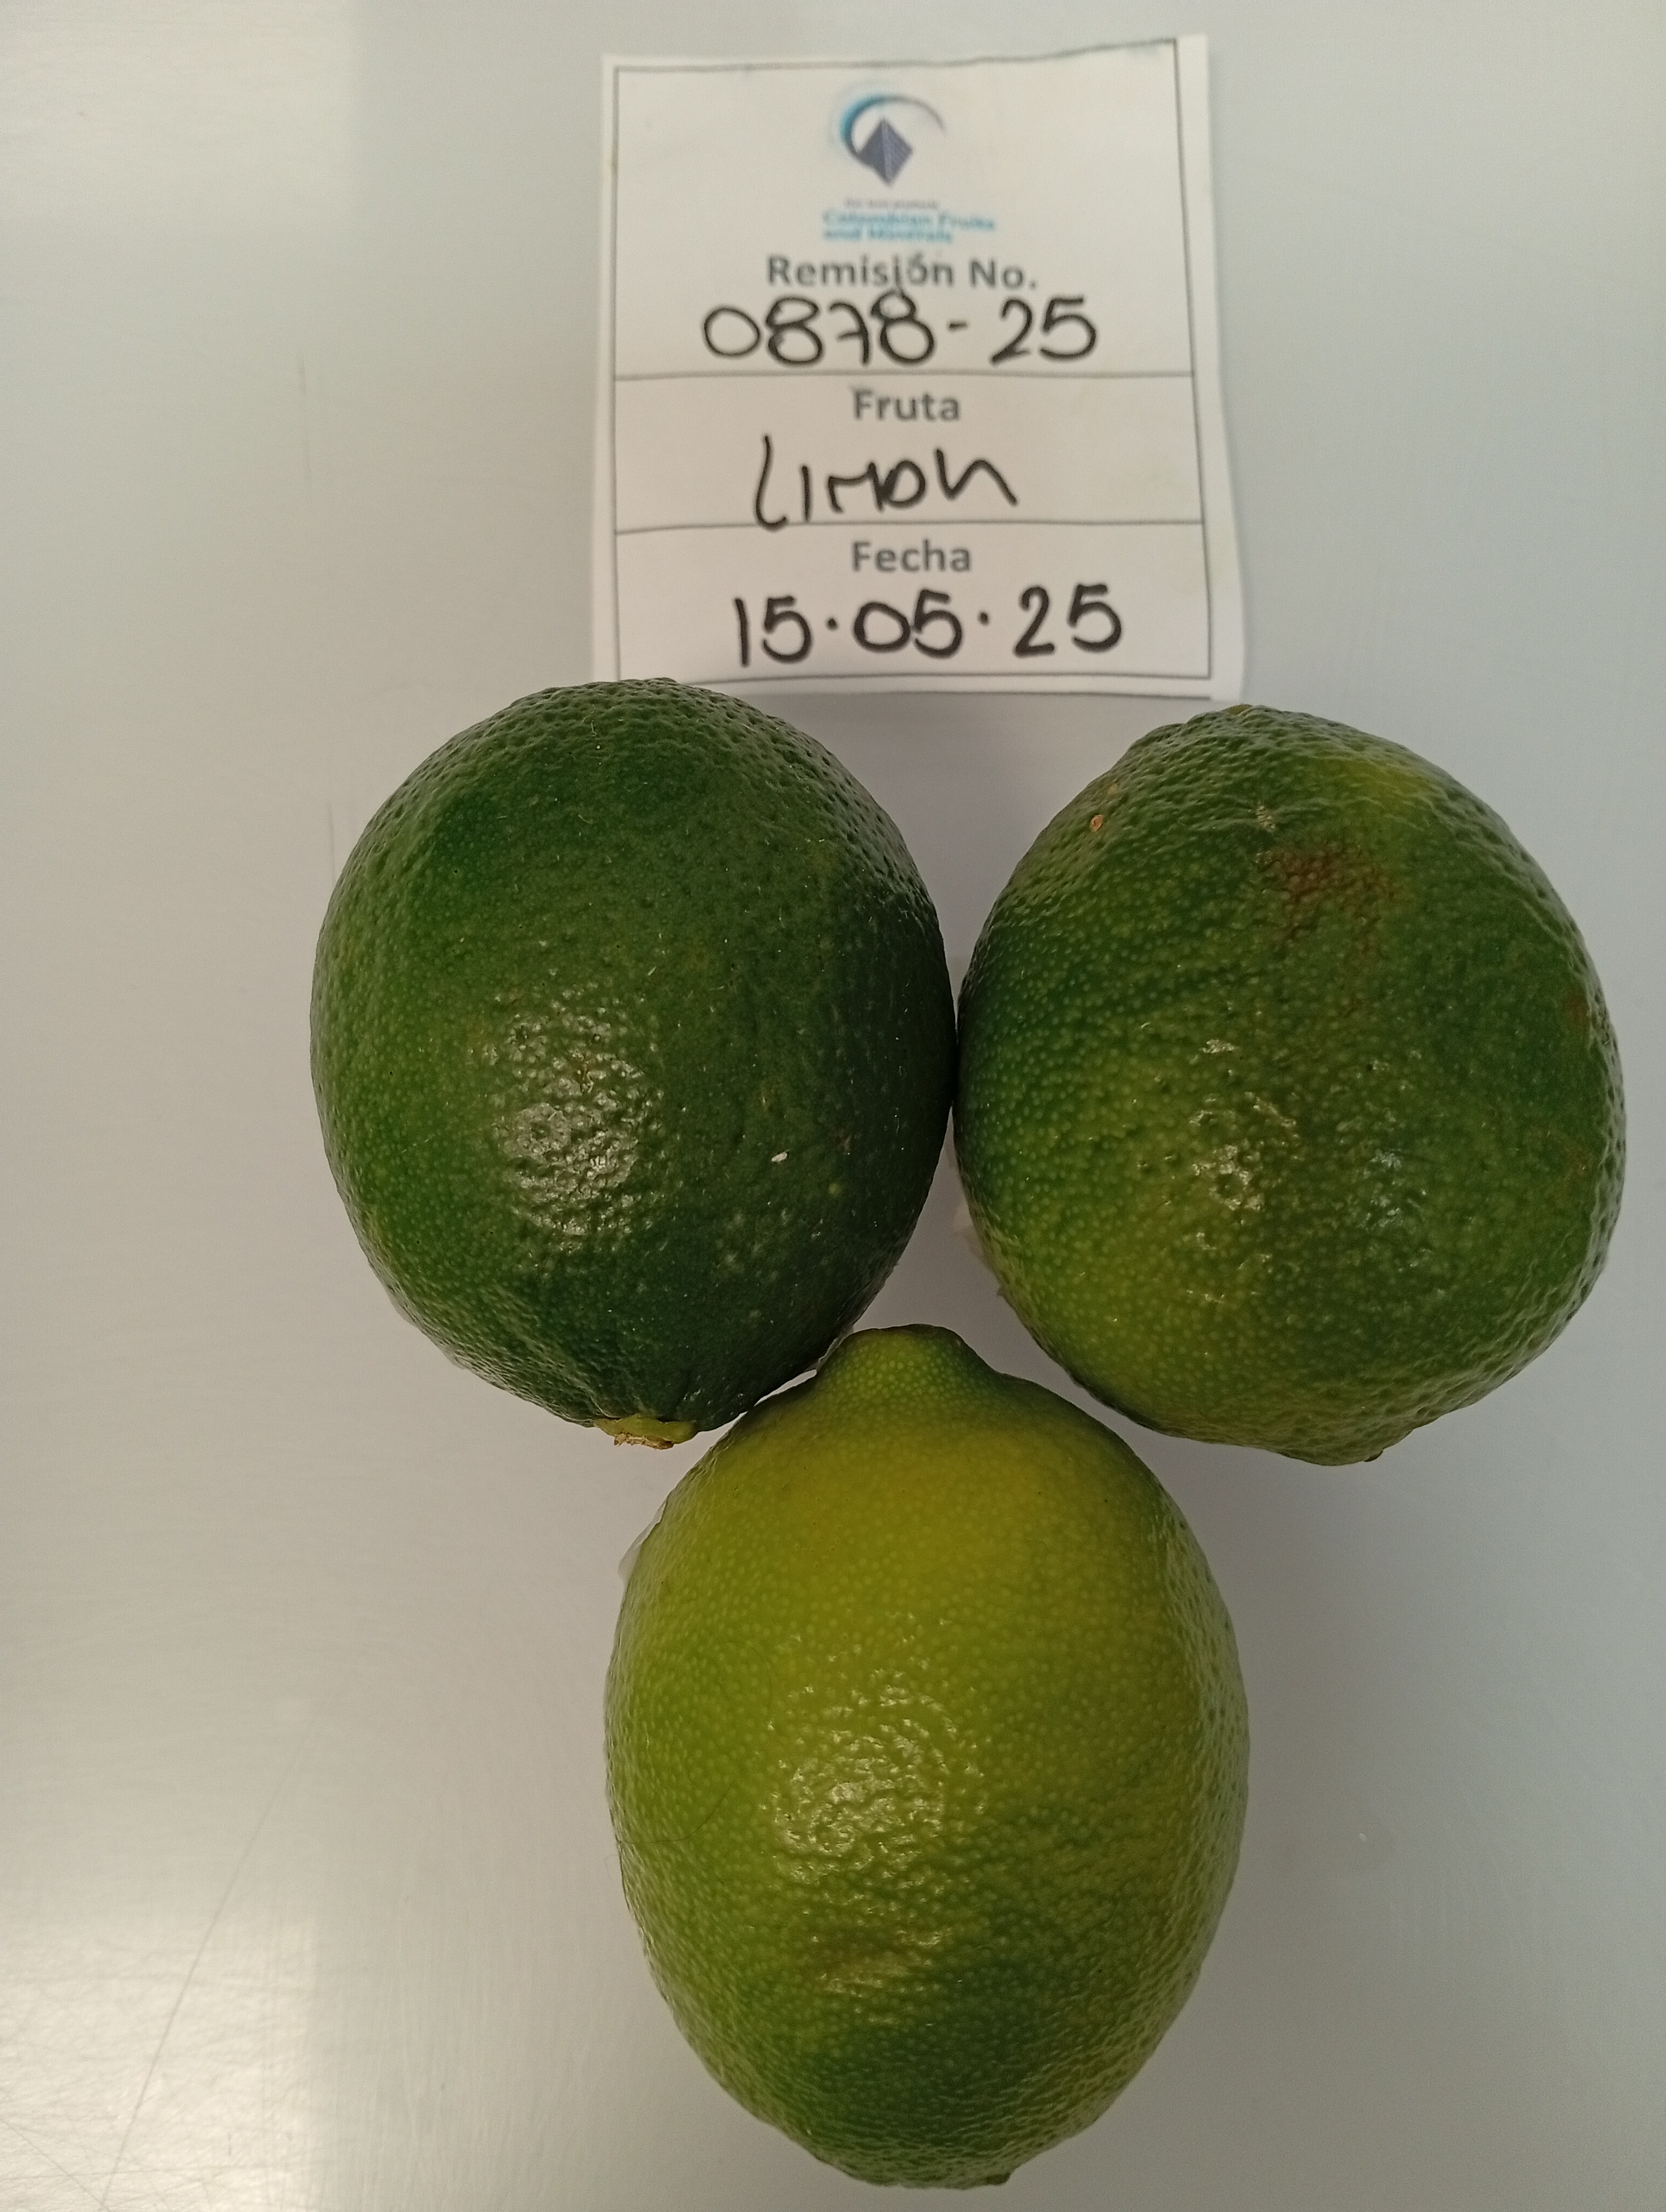 Colombian Fruits
and Minerals
Remisión No.
0878-25
Fruta
Limon
Fecha
15.05.25